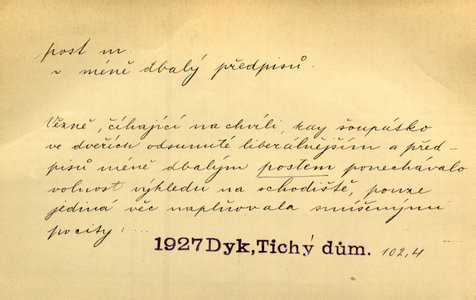 post m.
v méně dbalý předpisů.
Vězně, číhající na chvíli, kdy šoupátko
ve dveřích odsunuté liberálnějším a před-
pisů méně dbalým postem ponechávalo
volnost výhledu na schodiště, pouze
jediná věc naplňovala smíšenými
pocity: ...
1927 Dyk, Tichý dům. 102,4